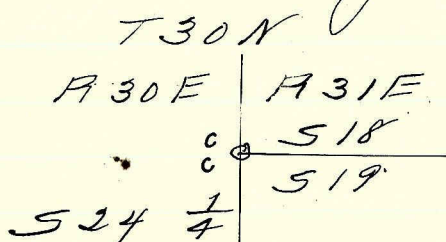 T30N
R30E R31E
C S18
C S19
S24 1/4